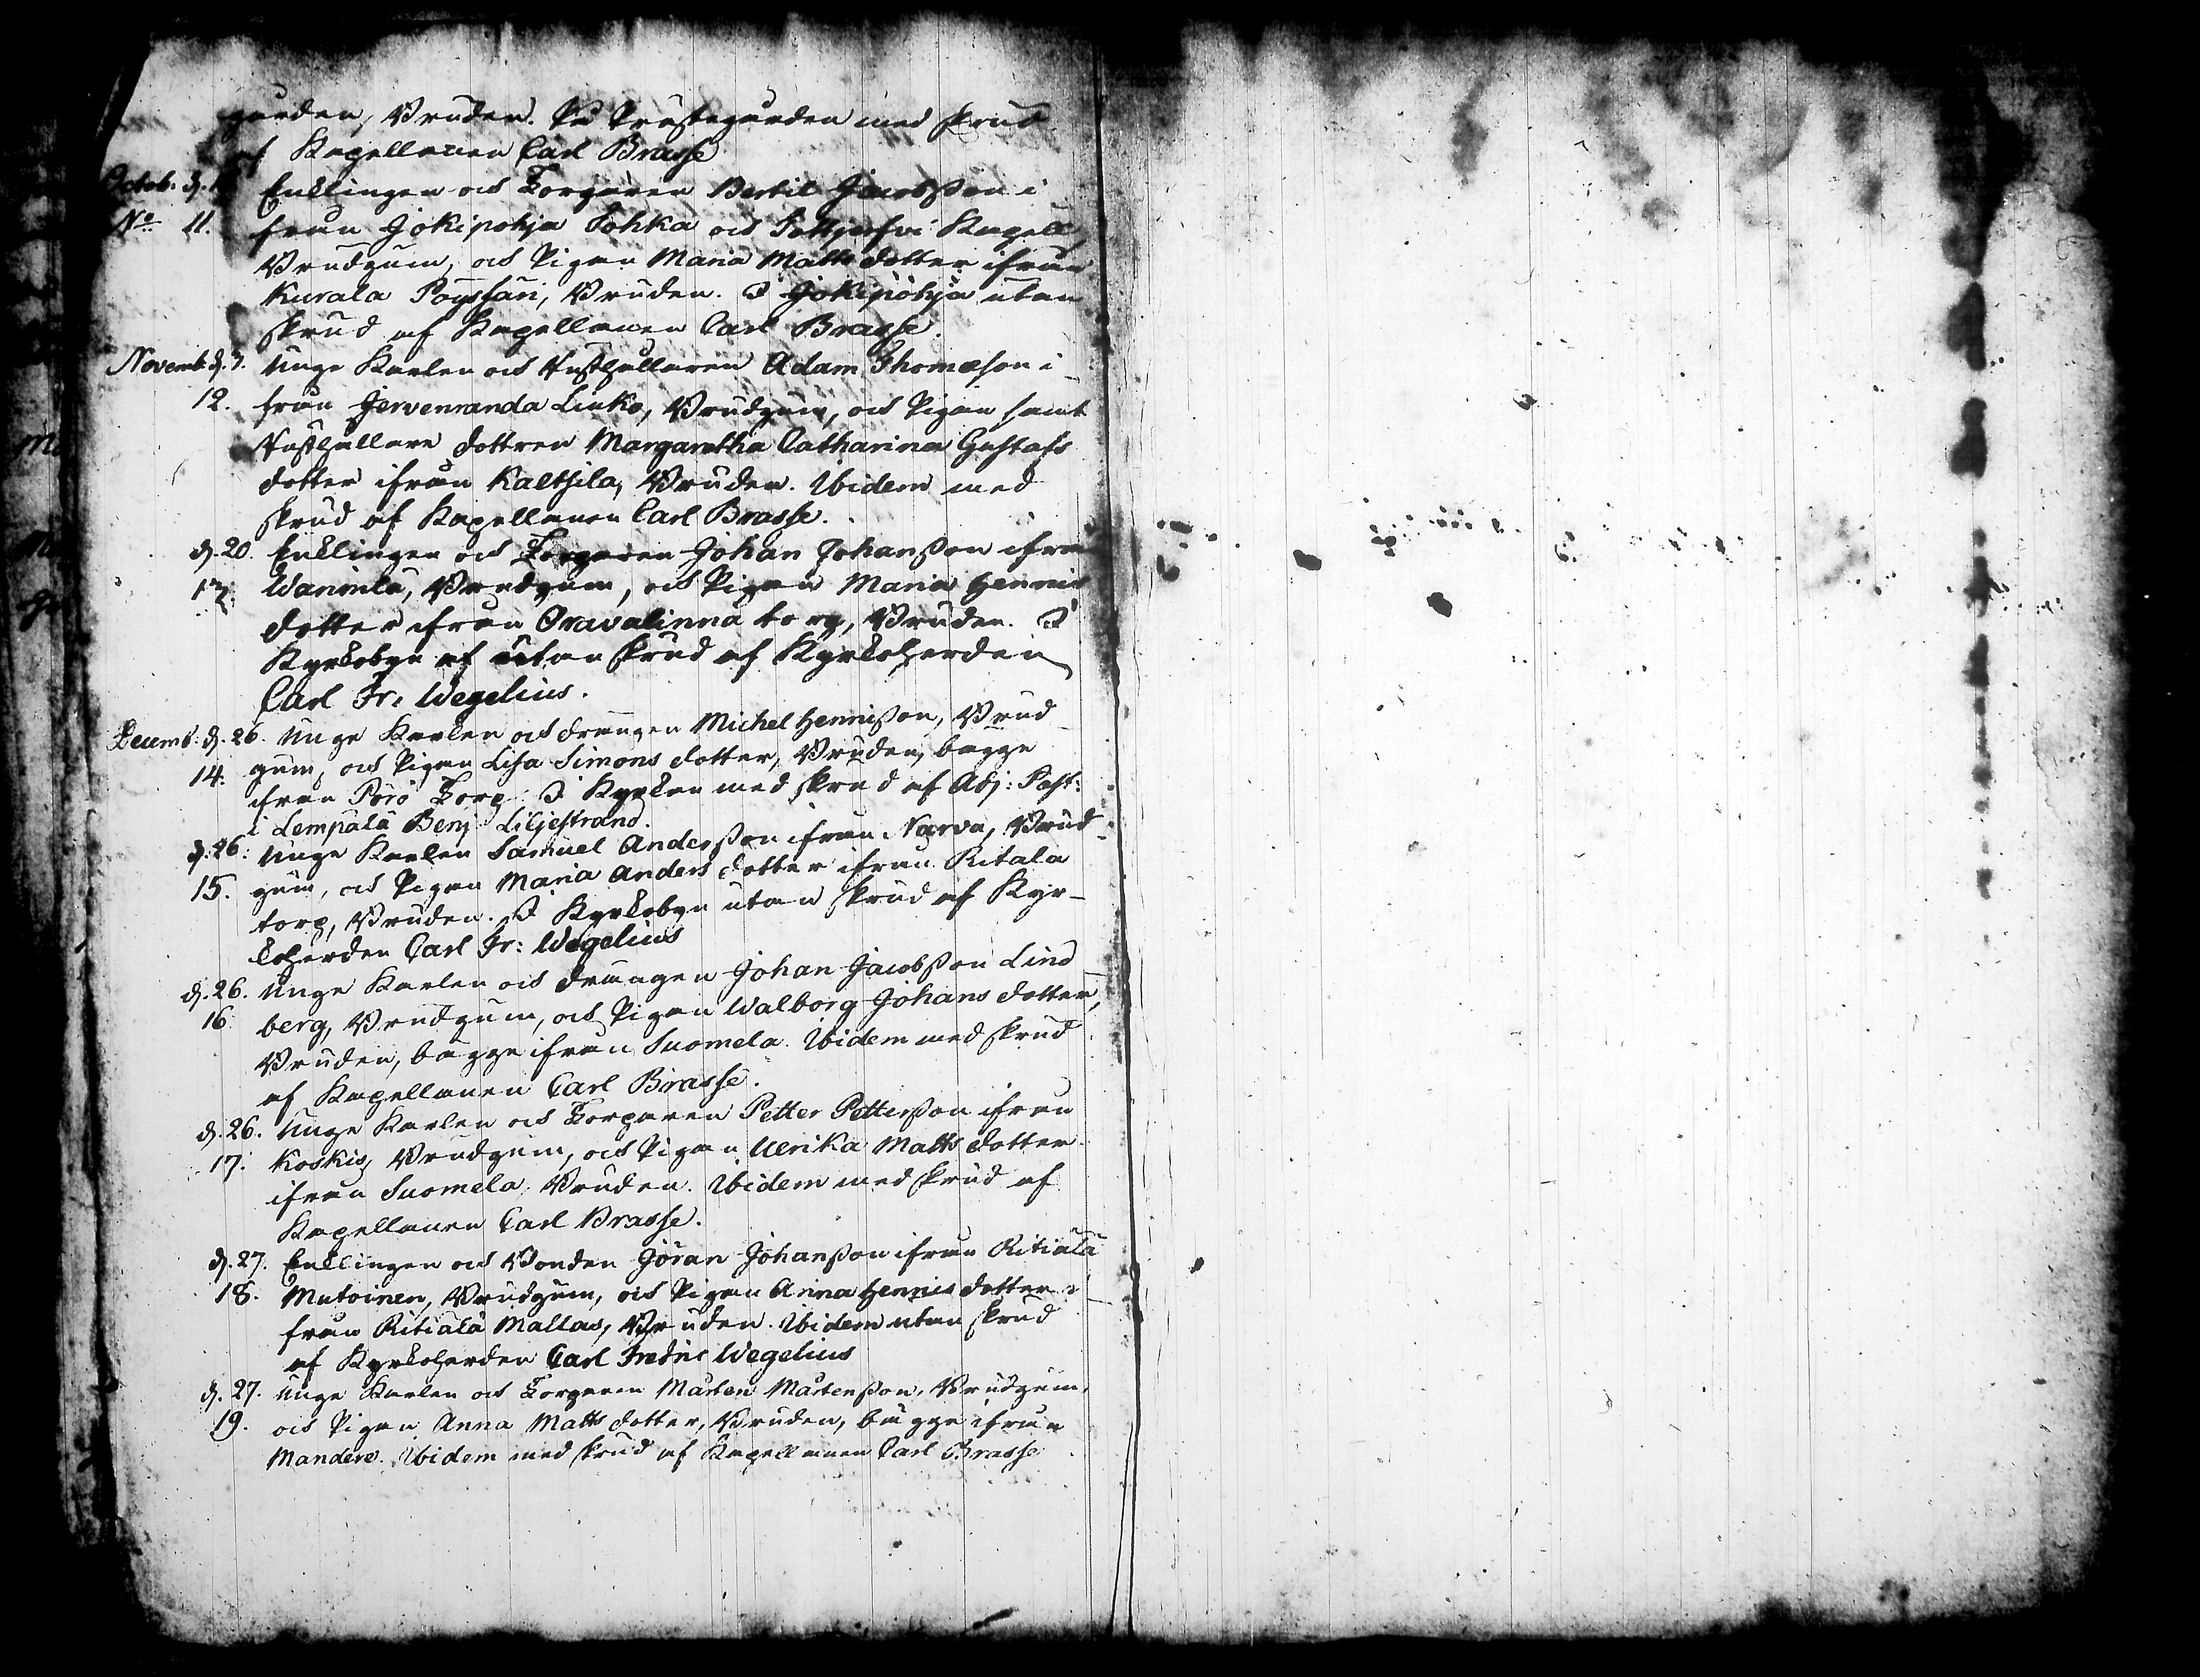 gården, Bruden. På Prästegården med skrud
af Kapellanen Carl Brasse
Octob. d. Enklingen och Torparen Bertil Jacobsson i
No 11. från Jokipohja Tohka och Tottjerfvi Kapell,
Brudgum, och Pigan Maria Matts dotter ifrån
Kurala Pöyssäri, Bruden. I Jokipohja utan
skrud af Kapellanen Carl Brasse.
Novemb. d. 7. Unge Karlen och Husthållaren Adam Thomæson i
12. från Jervenranda Linko, Brudgum, och Pigan samt
Husthållare dottren Margaretha Catharina Gustafs
dotter ifrån Kaltsila, Bruden. Ibidem med
skrud af Kapellanen Carl Brasse.
d. 20. Enklingen och Torparen Johan Johansson ifrån
13. Wanimla, Brudgum, och Pigan Maria Henrics
dotter ifrån Oravalinna torp, Bruden. I
Kyrkobyn af utan skrud af Kyrkoherden
Carl Fr: Wegelius.
Decemb: d. 26. Unge Karlen och drängen Michel Henricsson, Brud
14. gum, och Pigan Lisa Simons dotter, Bruden, bägge
ifrån Pörö Torp. I Kyrkan med skrud af Adj: Past:
i Lempälä Benj. Liljestrand.
d: 26: Unge Karlen Samuel Andersson ifrån Narva, Brud
15. gum, och Pigan Maria Anders dotter ifrån Ritala
torp, Bruden. I Kyrkobyn utan skrud af Kyr-
koherden Carl Fr: Wegelius
d. 26. Unge Karlen och drängen Johan Jacobsson Lind
16. berg, Brudgum, och Pigan Walborg Johans dotter,
Bruden, bägge ifrån Suomela. Ibidem med skrud
af Kapellanen Carl Brasse.
d. 26. Unge Karlen och Torparen Petter Pettersson ifrån
17. Koskis, Brudgum, och Pigan Ulrika Matts dotter
ifrån Suomela, Bruden. Ibidem med skrud af
Kapellanen Carl Brasse.
d. 27. Enklingen och Bonden Göran Johansson ifrån Ritiälä
18. Mutoinen, Brudgum, och Pigan Anna Henrics dotter i
från Ritiälä Mallas, Bruden. Ibidem utan skrud
af Kyrkoherden Carl Fredric Wegelius
d. 27. Unge Karlen och Torparen Mårten Mårtensson, Brudgum,
19. och Pigan Anna Matts dotter, Bruden, bägge ifrån
Mandere. Ibidem med skrud af Kapellanen Carl Brasse